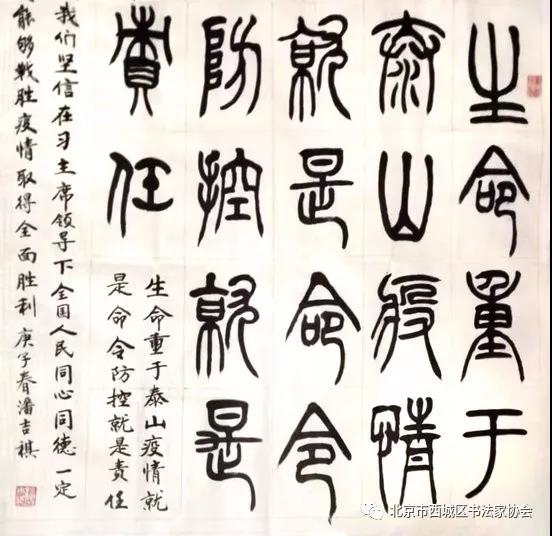 生命重于
泰山疫情
就是命令
防控就是
责任
生命重于泰山疫情就
是命令防控就是责任
我们坚信在习主席领导下全国人民同心同德一定
能够战胜疫情取得全面胜利庚子春潘吉祺
北京市西城区书法家协会